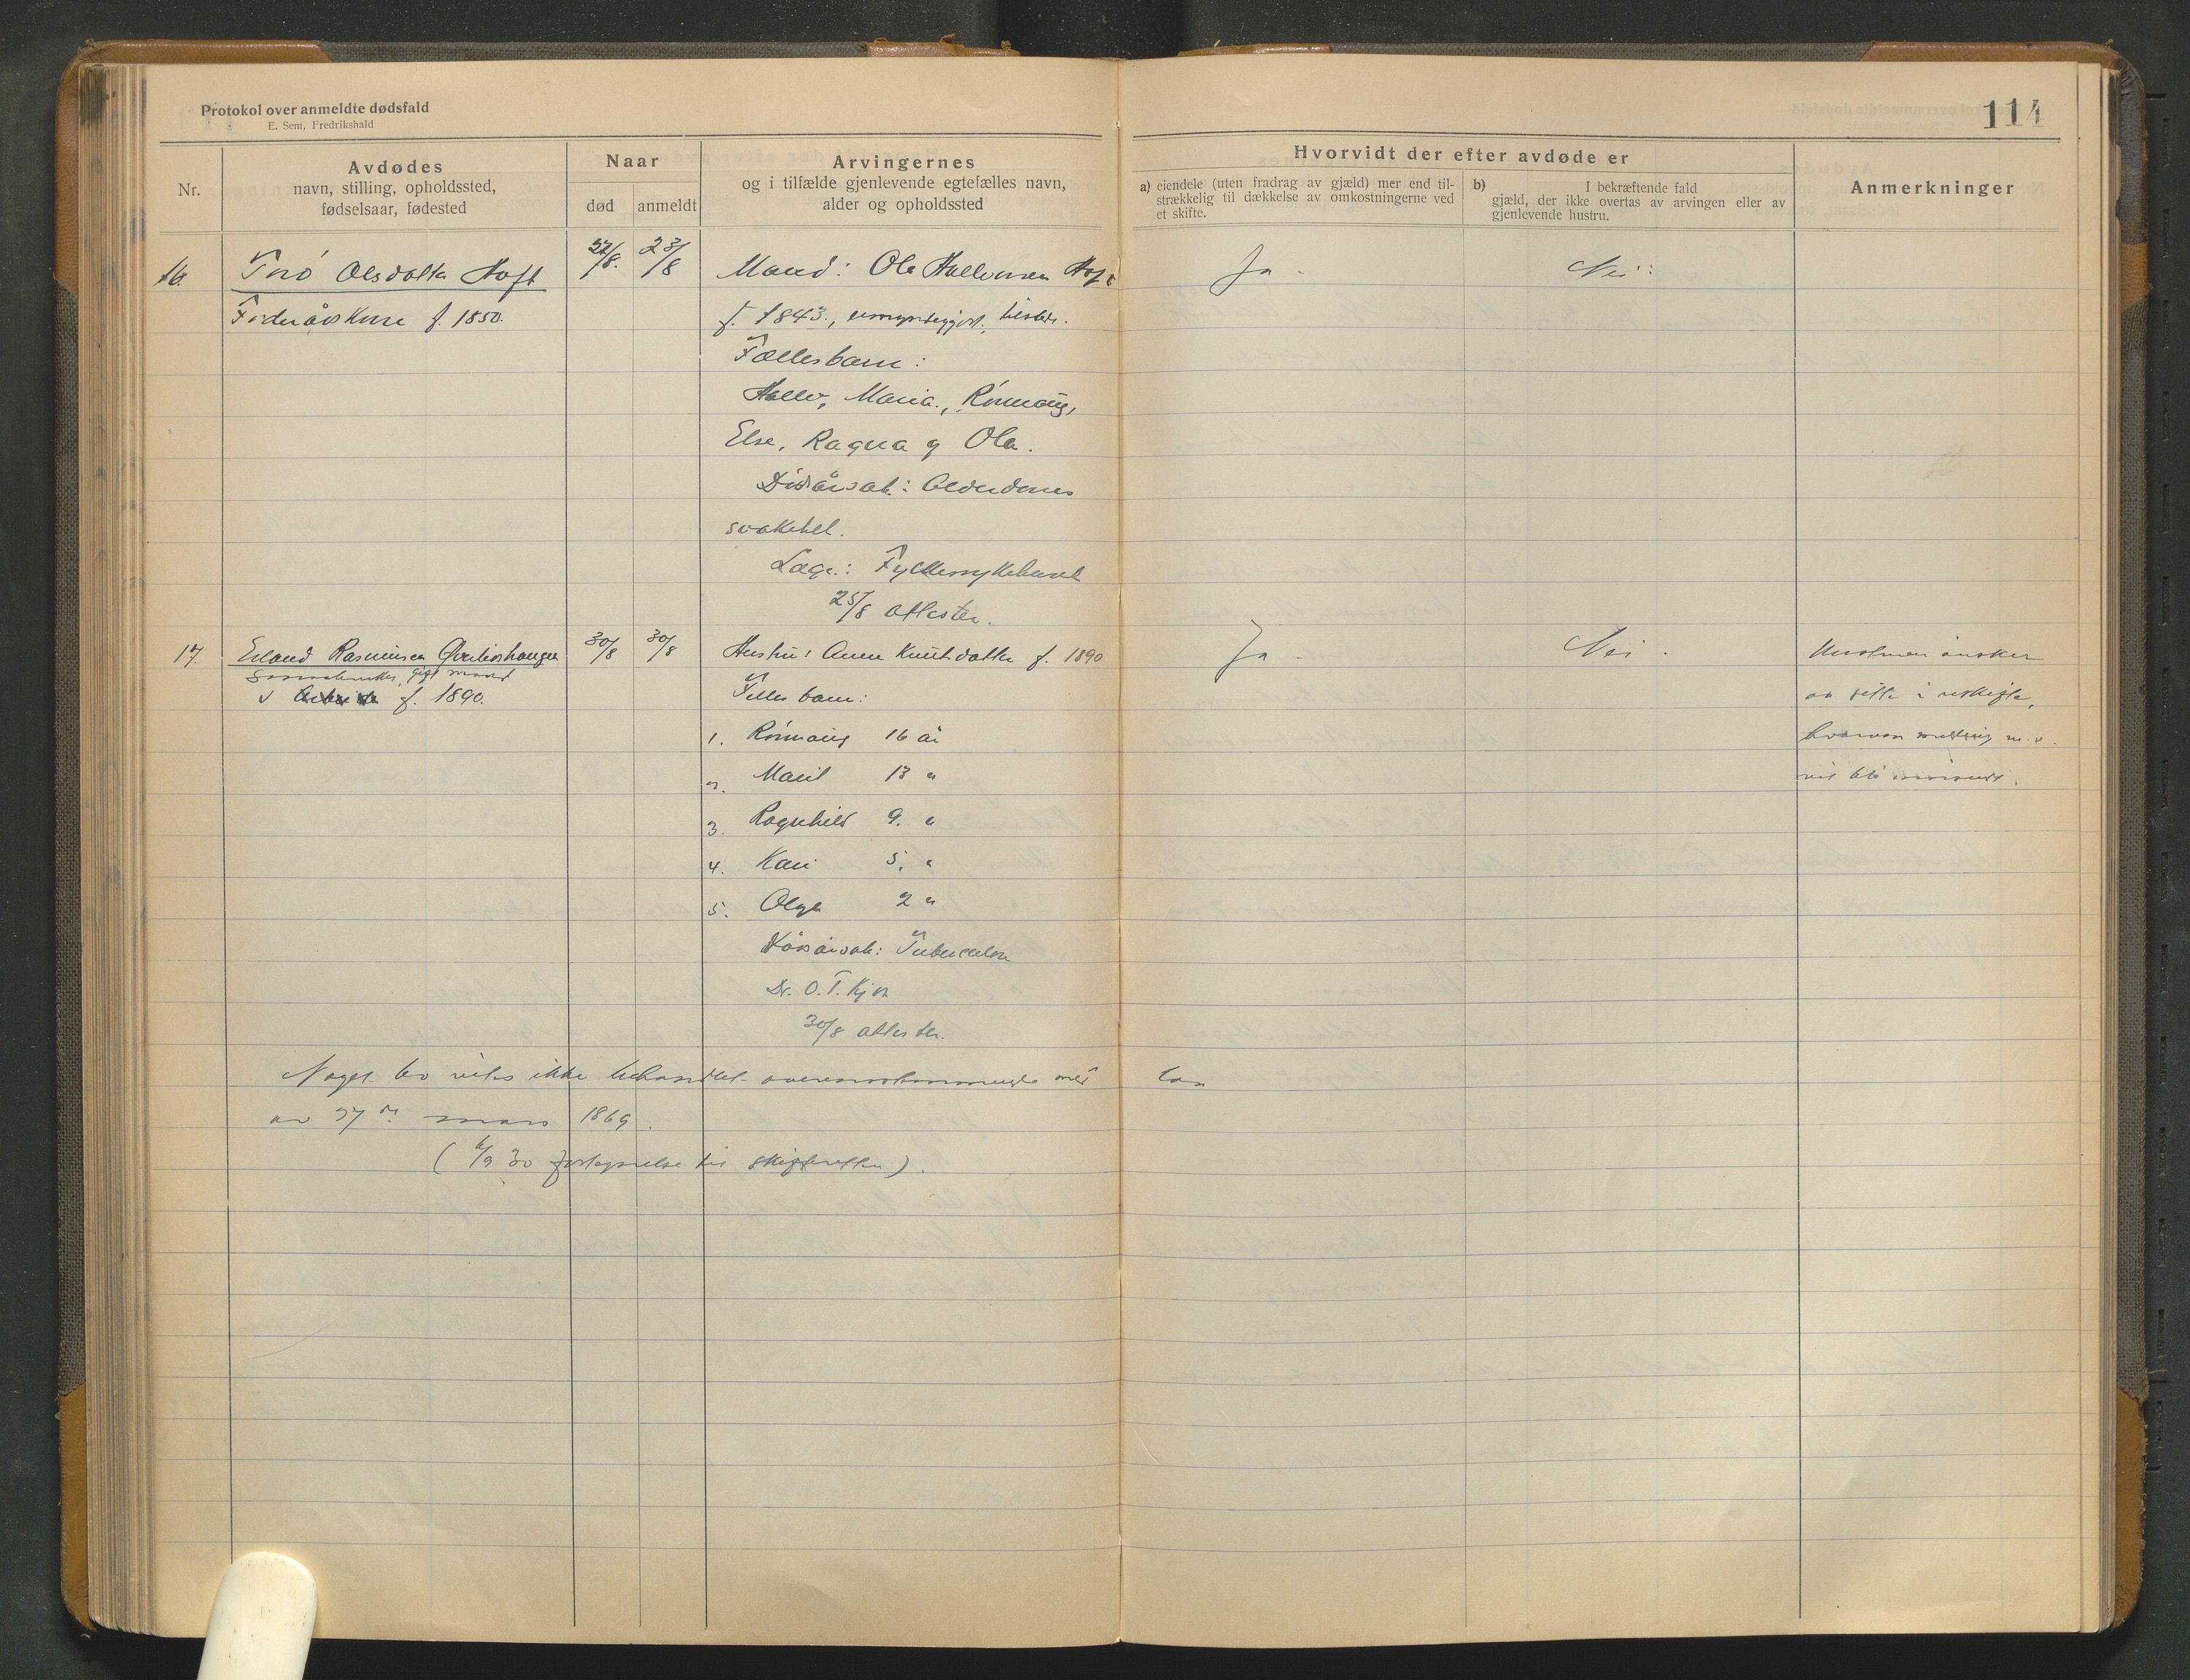 Protokol over anmeldte dødsfald
E. Sem, Fredrikshald
114
Nr.
Avdødes
navn, stilling, opholdssted,
fødselsaar, fødested
Naar
død
anmeldt
Arvingernes
og i tilfælde gjenlevende egtefælles navn,
alder og opholdssted
Hvorvidt der efter avdøde er
a) eiendele (uten fradrag av gjæld) mer end til-
strækkelig til dækkelse av omkostningerne ved
et skifte.
b) I bekræftende fald
gjæld, der ikke overtas av arvingen eller av
gjenlevende hustru.
Anmerkninger
16. Olsdatter Hoft 22/8. 23/8 Mand: Ola Hallvorsen Hoft Ja - Nei
Føderåds Kone f. 1850. f. 1843., umyndiggjort,
Fællesbarn:
Hallv, Maria, Rønnaug,
Else, Ragna og Ola.
Dødsårsak: Alderdoms
svakhet.
Læge: Fylkessykehuset
25/8 attester.
17. Erland Rasmussen 30/8 30/8 Hustru: Anne Knutsdatter f. 1890 Ja - Nei - Hustruen ønsker
gift mand
f. 1890. Felles barn: at sitte i uskifte,
1. Rønnaug 16 år hvorom melding
2. Marit 13 " vil bli
3. Ragnhild 9. "
4. Kari 5. "
5. Olga 2 "
Dødsårsak: Tuberculose
Dr. O. T.
30/8 attester.
Noget bo vites ikke behandlet overensstemmende med lov
av 27de mars 1869.
(6/9 30 forleggelse til skifteretten).